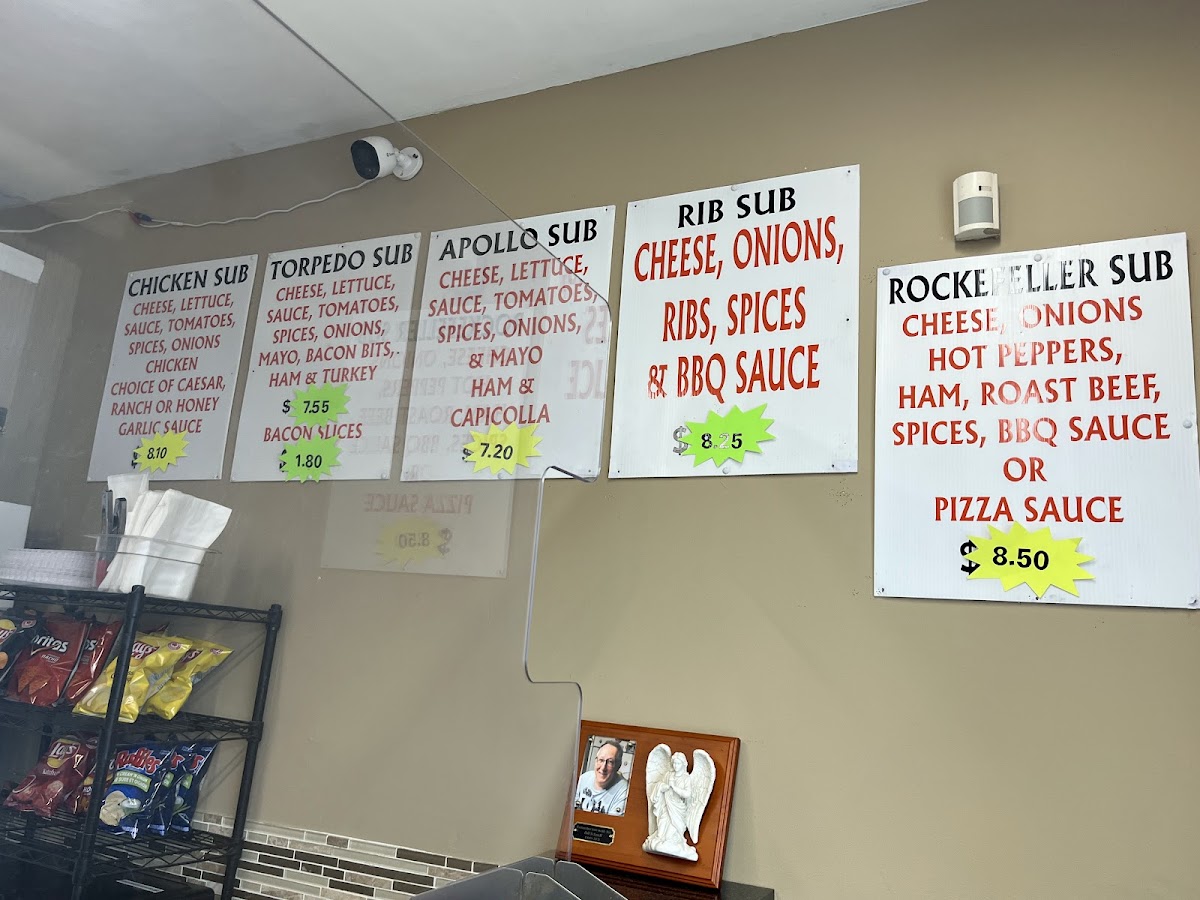 CHICKEN SUB
CHEESE, LETTUCE,
SAUCE, TOMATOES,
SPICES, ONIONS
CHICKEN
CHOICE OF CAESAR,
RANCH OR HONEY
GARLIC SAUCE
$ 8.10
TORPEDO SUB
CHEESE, LETTUCE,
SAUCE, TOMATOES,
SPICES, ONIONS,
MAYO, BACON BITS,
HAM & TURKEY
$ 7.55
BACON SLICES
$ 1.80
APOLLO SUB
CHEESE, LETTUCE,
SAUCE, TOMATOES,
SPICES, ONIONS,
& MAYO
HAM &
CAPICOLLA
$ 7.20
RIB SUB
CHEESE, ONIONS,
RIBS, SPICES
& BBQ SAUCE
$ 8.25
ROCKEFELLER SUB
CHEESE, ONIONS
HOT PEPPERS,
HAM, ROAST BEEF,
SPICES, BBQ SAUCE
OR
PIZZA SAUCE
$ 8.50
Doritos
Lay's
Lay's
Ruffles